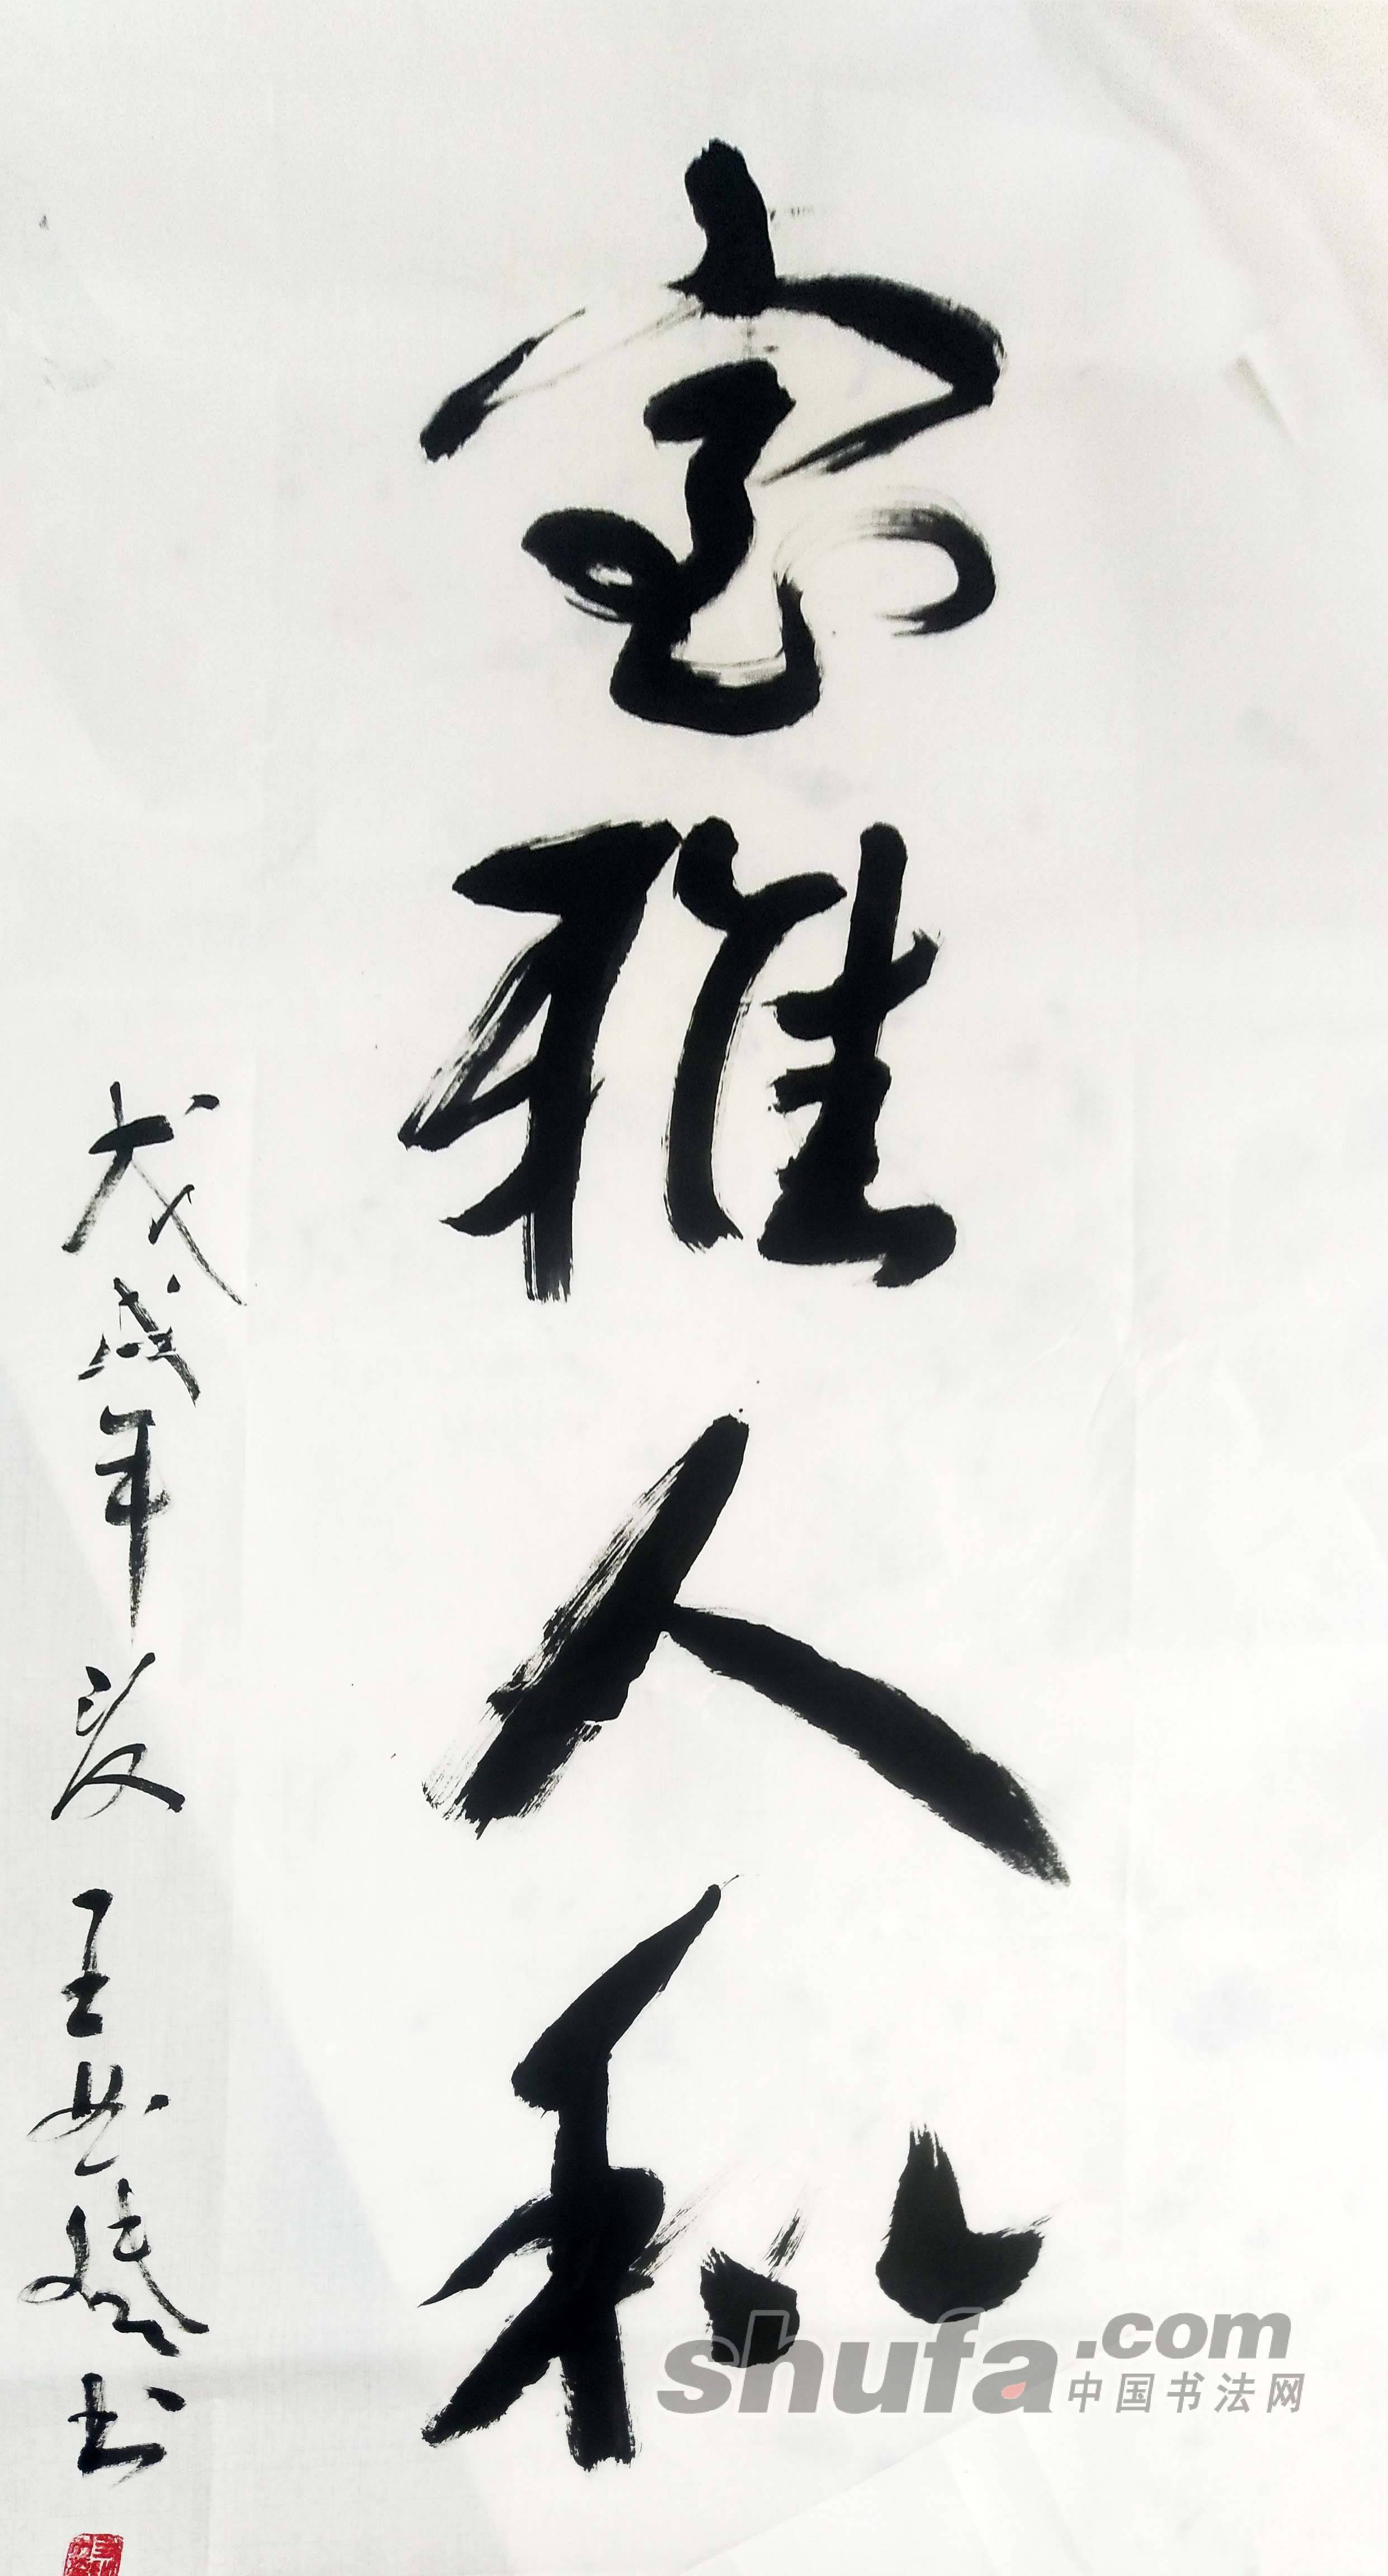 室雅人和
戊戌年夏 王 书
shufa.com
中国书法网